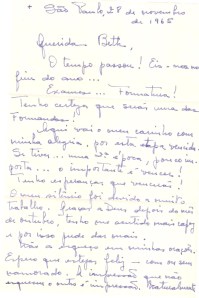 + São Paulo, 28 de novembro
de 1965
Querida Beth,
O tempo passou! Eis-nos no
fim do ano...
Exames... Formatura!
Tenho certeza que serás uma das
Formandas.
Aqui vai o meu carinho com
minha alegria, por esta etapa vencida.
Se tiver... uma 2ª época, pouco im-
porta... o importante é vencer!
Tenho esperanças que vencerás!
O meu silêncio foi devido a muito
trabalho. Graças a Deus depois do mês
de outubro, tenho me sentido mais capaz
e por isso pude dar mais.
Não a esqueço em minhas orações.
Espero que estejas feliz — com ou sem
namorado. A impressão que não
esquecem o outro é impressão. Naturalmente